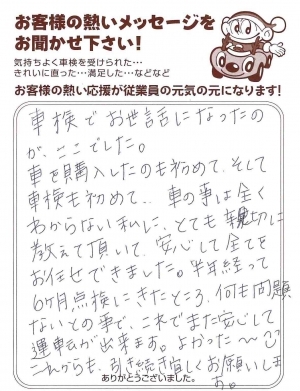 お客様の熱いメッセージを
お聞かせ下さい！
気持ちよく車検を受けられた…
きれいに直った…満足した…などなど
お客様の熱い応援が従業員の元気の元になります！
車検でお世話になったの
が、ここでした。
車を購入したのも初めて、そして
車検も初めて‥ 車の事は全く
わからない私に、とても親切に
教えて頂いて、安心して全てを
お任せできました。半年経って
6ヶ月点検にきたところ、何も問題
ないとの事で、これでまた安心して
運転が出来ます。よかった〜
これからも、引き続き宜しくお願いしま
す。
ありがとうございました。